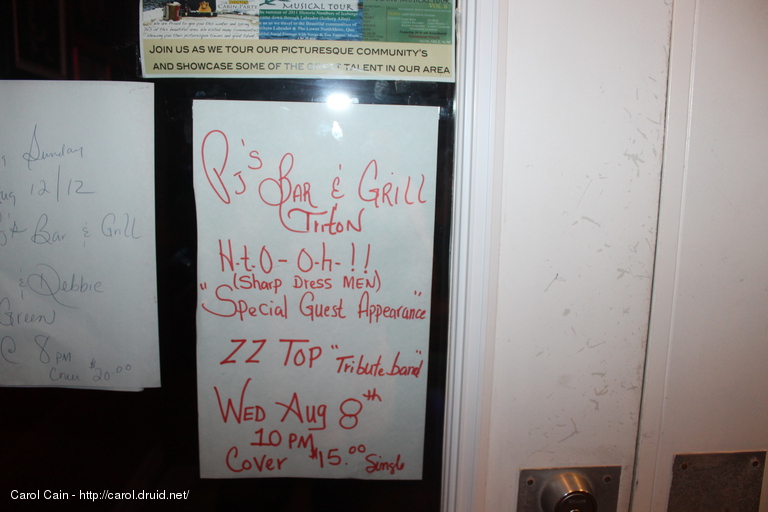 MUSICAL TOUR
JOIN US AS WE TOUR OUR PICTURESQUE COMMUNITY'S
AND SHOWCASE SOME OF THE GREAT TALENT IN OUR AREA
Sunday
Aug 12/12
PJ's Bar & Grill
& Debbie
Green
@ 8 PM
Cover $20.00
PJ'S
BAR & GRILL
TRITON
H-t.O-O-h-!!
(SHARP DRESS MEN)
"Special Guest Appearance"
ZZ TOP "Tribute band"
WED Aug 8th
10 PM
Cover $15.00 Single
Carol Cain - http://carol.druid.net/